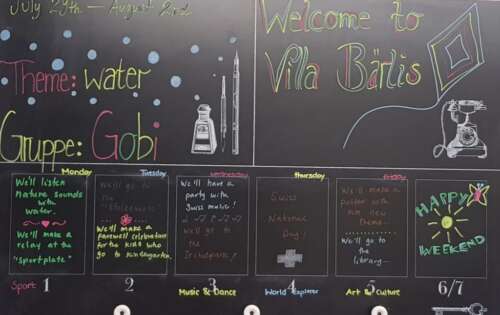 July 29th — August 2nd
Theme: water
Gruppe: Gobi
Welcome to
Villa Bärlis
Monday
We'll listen
Nature sounds
with
water.
We'll make a
relay at the
"sportplatz"
Tuesday
We'll go to
the
We'll make a
farewell celebration
for the kids who
go to Kindergarten.
Wednesday
We'll have a
party with
Swiss music!
We'll go to
the
Thursday
Swiss
National
Day!
Friday
We'll make a
poster with
our new
theme
We'll go to
the
library
HAPPY
WEEKEND
Sport 1
2
3
4
5
6/7
Music & Dance
World Explorer
Art & Culture